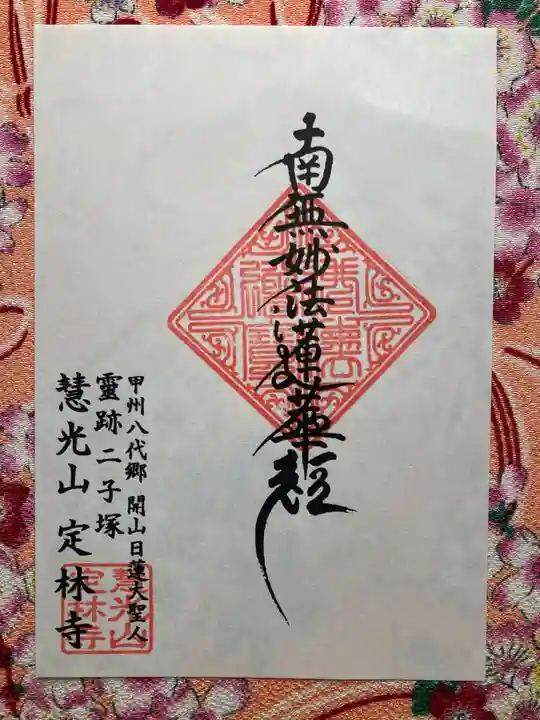 南無妙法蓮華経
甲州八代郷 開山日蓮大聖人
霊跡二子塚
慧光山 定林寺
慧光山
定林寺